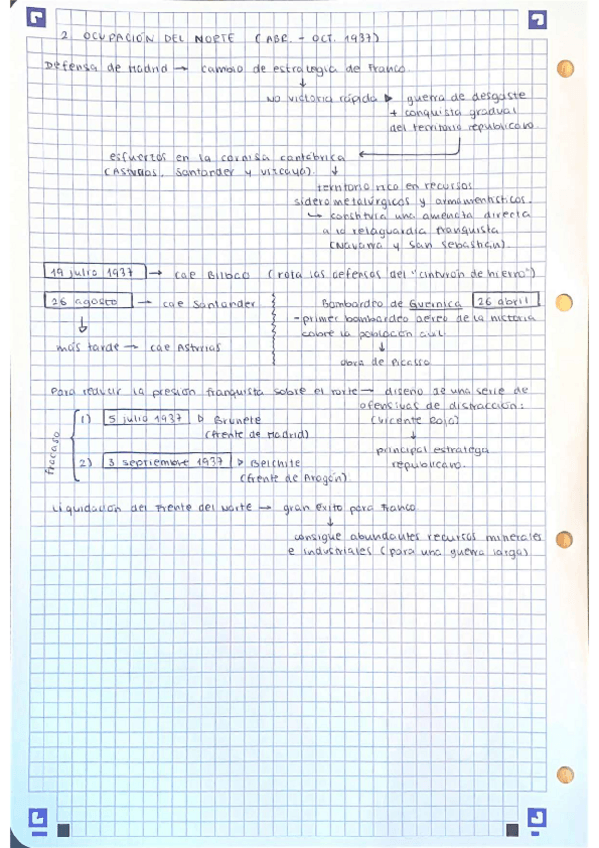 2. OCUPACIÓN DEL NORTE (ABR. - OCT. 1937)
Defensa de Madrid → cambio de estrategia de Franco.
↓
NO victoria rápida ▷ guerra de desgaste
+ conquista gradual
del territorio republicano.
esfuerzos en la cornisa cantábrica ←
(Asturias, Santander y Vizcaya). ↓
territorio rico en recursos
siderometalúrgicos y armamentísticos.
↳ constituía una amenaza directa
a la retaguardia franquista
(Navarra y San Sebastián).
19 julio 1937 → cae Bilbao (rota las defensas del "cinturón de hierro")
26 agosto → cae Santander
↓
más tarde → cae Asturias
Bombardeo de Guernica 26 abril
- primer bombardeo aéreo de la historia
sobre la población civil.
↓
obra de Picasso
Para reducir la presión franquista sobre el norte → diseño de una serie de
ofensivas de distracción:
(Vicente Rojo)
↓
principal estratega
republicano.
fracaso
1) 5 julio 1937 ▷ Brunete
(frente de Madrid)
2) 3 septiembre 1937 ▷ Belchite
(frente de Aragón)
Liquidación del Frente del Norte → gran éxito para Franco
↓
consigue abundantes recursos minerales
e industriales (para una guerra larga)